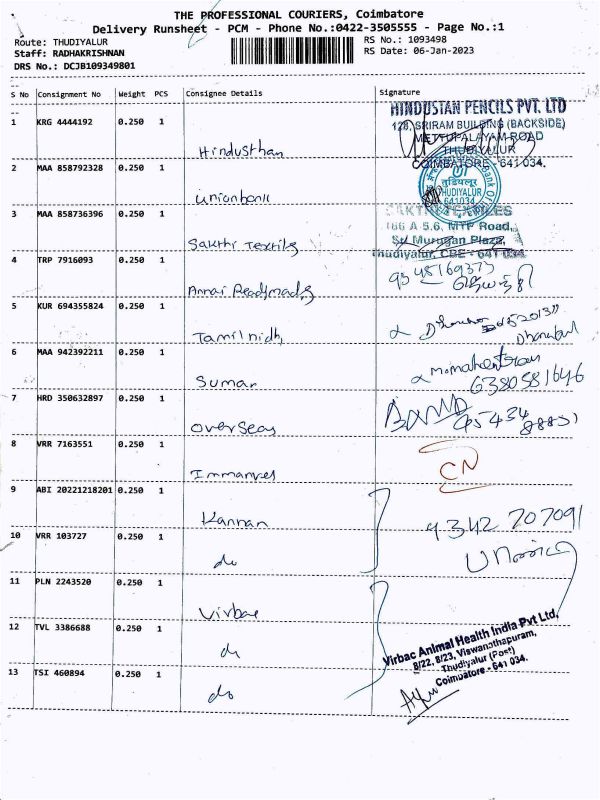 THE PROFESSIONAL COURIERS, Coimbatore
Delivery Runsheet - PCM - Phone No.:0422-3505555 - Page No.:1
Route: THUDIYALUR
Staff: RADHAKRISHNAN
DRS No.: DCJB109349801
RS No.: 1093498
RS Date: 06-Jan-2023
S No Consignment No Weight PCS Consignee Details Signature
1 KRG 4444192 0.250 1
Hindusthan
HINDUSTAN PENCILS PVT. LTD
128, SRIRAM BUILDING (BACKSIDE)
METTUPALAYAM ROAD
THUDIYALUR
COIMBATORE - 641 034.
2 MAA 858792328 0.250 1
Unionbank
तुडियलूर
THUDIYALUR
641034
3 MAA 858736396 0.250 1
Sakthi Textiles
SAKTHI TEXTILES
166 A 5.6, MTP Road,
Sri Murugan Plaza,
Thudiyalur, CBE - 641 034.
4 TRP 7916093 0.250 1
Annai Readymades
5 KUR 694355824 0.250 1
Tamilnidhi
6 MAA 942392211 0.250 1
Suman
6380581646
7 HRD 350632897 0.250 1
Overseas
8 VRR 7163551 0.250 1
Immanvel
CN
9 ABI 20221218201 0.250 1
Kannan
9342 707091
10 VRR 103727 0.250 1
do
11 PLN 2243520 0.250 1
Virbac
12 TVL 3386688 0.250 1
do
Virbac Animal Health India Pvt Ltd,
8/22, 8/23, Viswanathapuram,
Thudiyalur (Post)
Coimbatore - 641 034.
13 TSI 460894 0.250 1
do